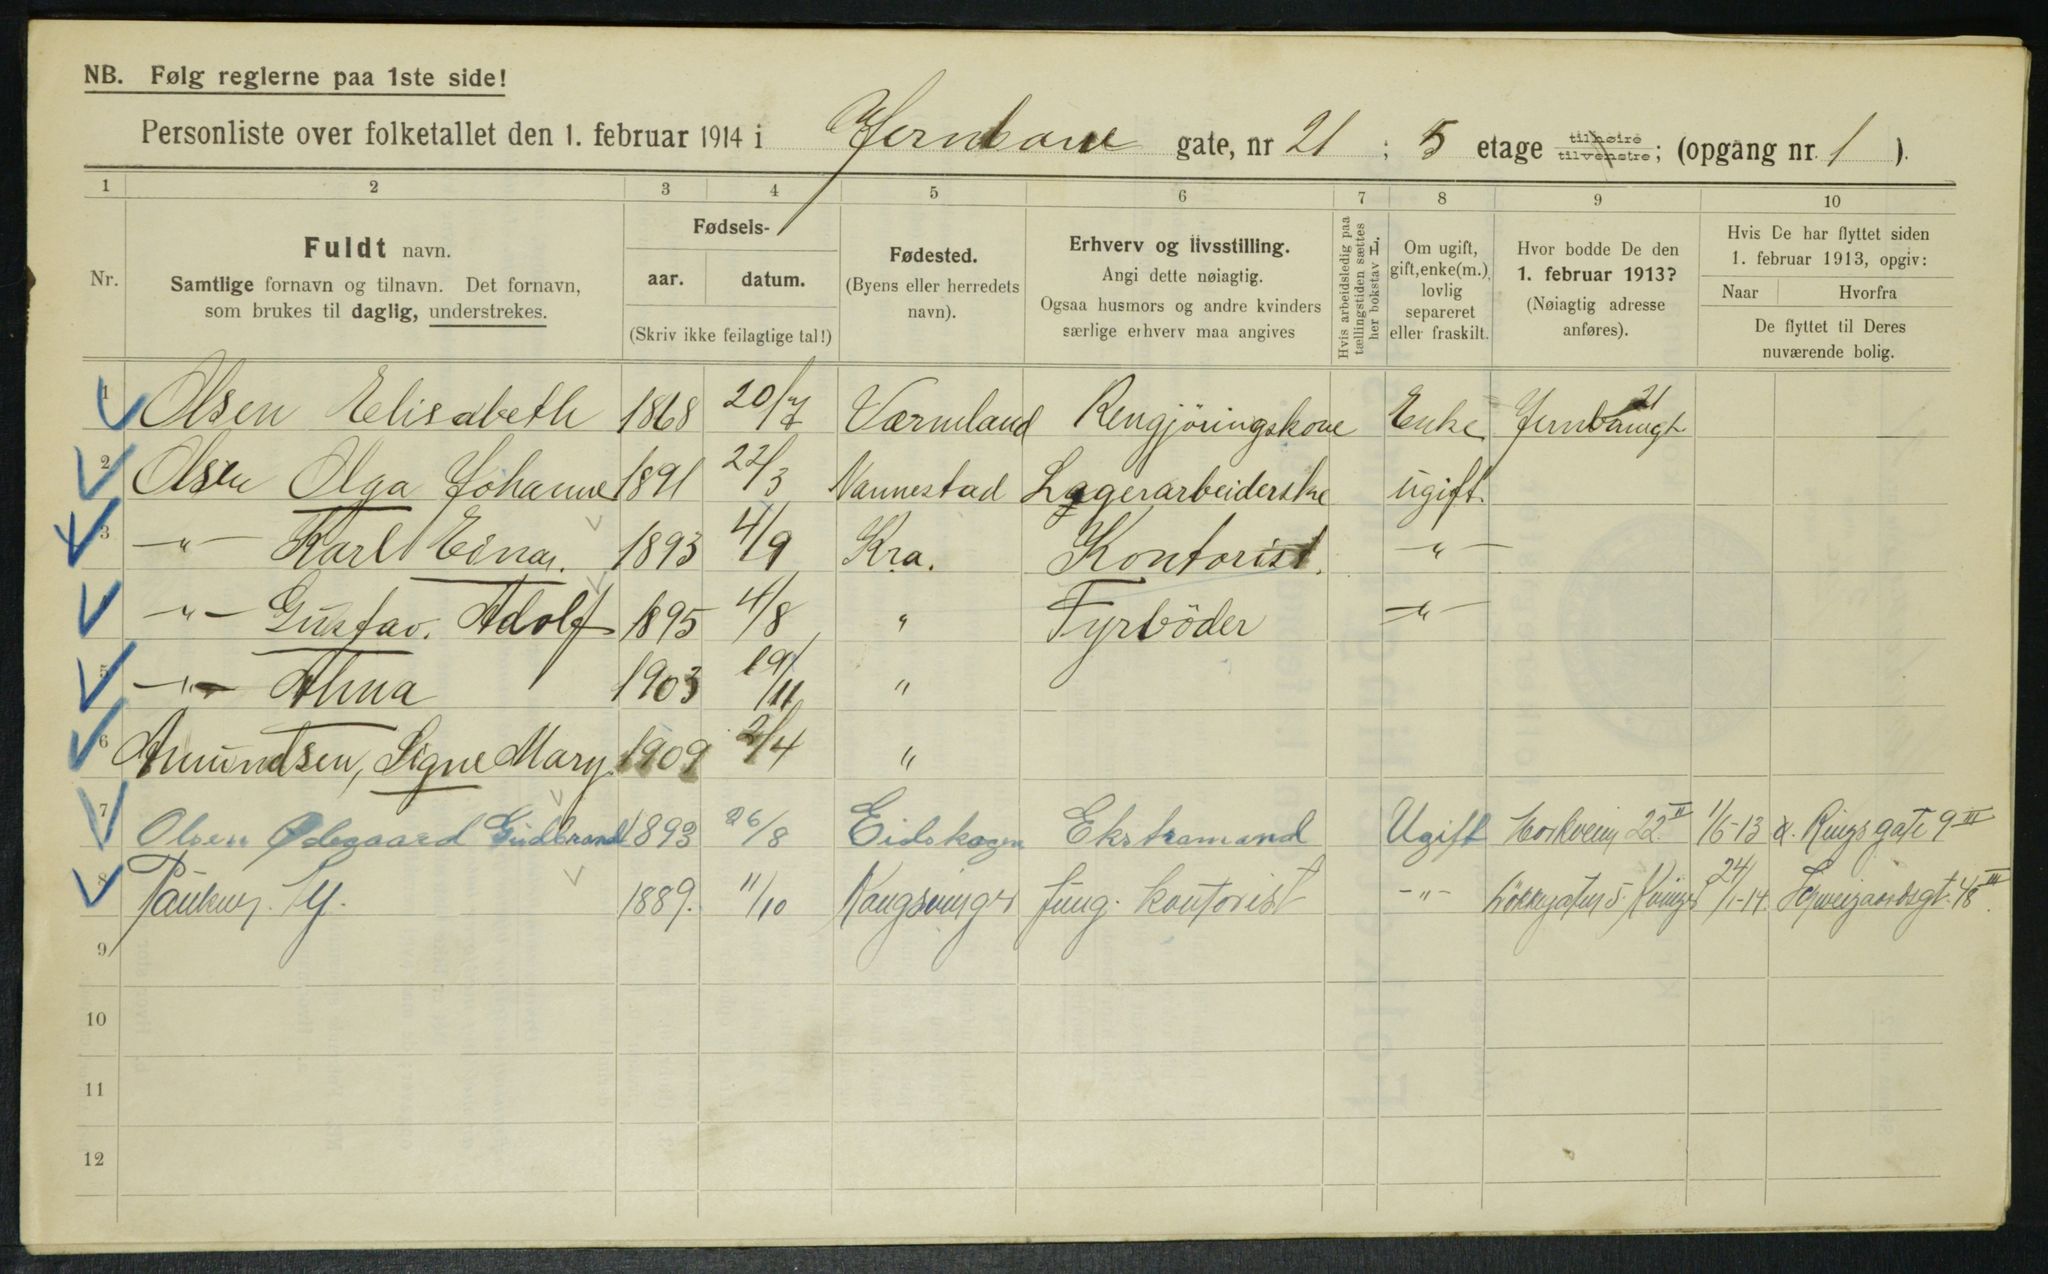 NB. Følg reglerne paa 1ste side!
Personliste over folketallet den 1. februar 1914 i Jernbane gate, nr 21 ; 5 etage tilhøire tilvenstre; (opgang nr. 1 ).
1 2 3 4 5 6 7 8 9 10
Nr.
Fuldt navn.
Samtlige fornavn og tilnavn. Det fornavn,
som brukes til daglig, understrekes.
Fødsels-
aar. datum.
(Skriv ikke feilagtige tal!)
Fødested.
(Byens eller herredets
navn).
Erhverv og livsstilling.
Angi dette nøiagtig.
Ogsaa husmors og andre kvinders
særlige erhverv maa angives
Hvis arbeidsledig paa
tællingstiden sættes
her bokstav L.
Om ugift,
gift, enke(m.),
lovlig
separeret
eller fraskilt.
Hvor bodde De den
1. februar 1913?
(Nøiagtig adresse
anføres).
Hvis De har flyttet siden
1. februar 1913, opgiv:
Naar Hvorfra
De flyttet til Deres
nuværende bolig.
1 Olsen Elisabeth 1868 20/7 Værmland Rengjöringskone Enke Jernbanegt 21
2 Olsen Olga Johanne 1891 22/3 Nannestad Lagerarbeiderske ugift.
3 -"- Karl Einar. 1893 4/9 Kra. Kontorist. -"-
4 -"- Gustav. Adolf 1895 4/8 " Fyrböder -"-
5 -"- Alma 1903 19/11 "
6 Amundsen, Signe Mary. 1909 2/4 "
7 Olsen Ødegaard Gudbrand 1893 26/8 Eidskogen Ekstramand Ugift 22 II 1/6-13 Ringsgate 9 III
8 1889. 11/10 Kongsvinger fung. kontorist -"- 24/1-14. Schweigaardsgt. 48 III
9
10
11
12